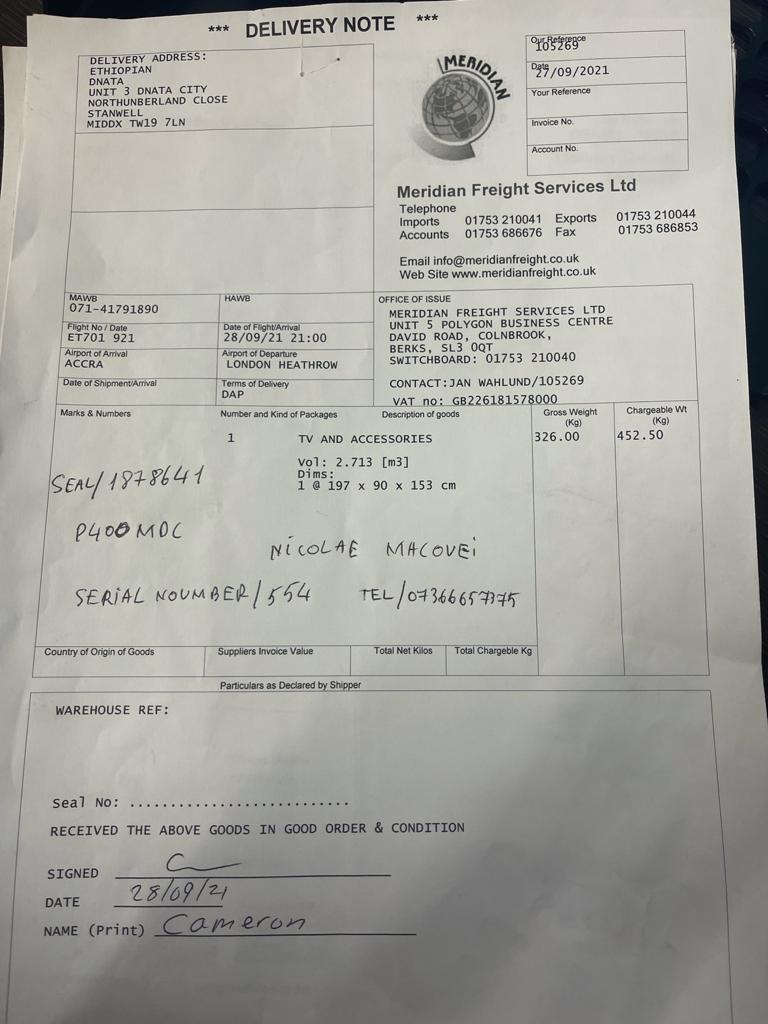 *** DELIVERY NOTE ***
DELIVERY ADDRESS:
ETHIOPIAN
DNATA
UNIT 3 DNATA CITY
NORTHUNBERLAND CLOSE
STANWELL
MIDDX TW19 7LN
MERIDIAN
Our Reference
105269
Date
27/09/2021
Your Reference
Invoice No.
Account No.
Meridian Freight Services Ltd
Telephone
Imports 01753 210041 Exports 01753 210044
Accounts 01753 686676 Fax 01753 686853
Email info@meridianfreight.co.uk
Web Site www.meridianfreight.co.uk
MAWB
071-41791890
HAWB
Flight No / Date
ET701 921
Date of Flight/Arrival
28/09/21 21:00
Airport of Arrival
ACCRA
Airport of Departure
LONDON HEATHROW
Date of Shipment/Arrival
Terms of Delivery
DAP
OFFICE OF ISSUE
MERIDIAN FREIGHT SERVICES LTD
UNIT 5 POLYGON BUSINESS CENTRE
DAVID ROAD, COLNBROOK,
BERKS, SL3 0QT
SWITCHBOARD: 01753 210040
CONTACT:JAN WAHLUND/105269
VAT no: GB226181578000
Marks & Numbers Number and Kind of Packages Description of goods Gross Weight (Kg) Chargeable Wt (Kg)
1 TV AND ACCESSORIES 326.00 452.50
Vol: 2.713 [m3]
Dims:
1 @ 197 x 90 x 153 cm
SEAL/1878641
P400MDC
NICOLAE MACOVEI
SERIAL NOUMBER/554 TEL/07366657375
Country of Origin of Goods Suppliers Invoice Value Total Net Kilos Total Chargeble Kg
Particulars as Declared by Shipper
WAREHOUSE REF:
Seal No: ...........................
RECEIVED THE ABOVE GOODS IN GOOD ORDER & CONDITION
SIGNED
DATE 28/09/21
NAME (Print) Cameron